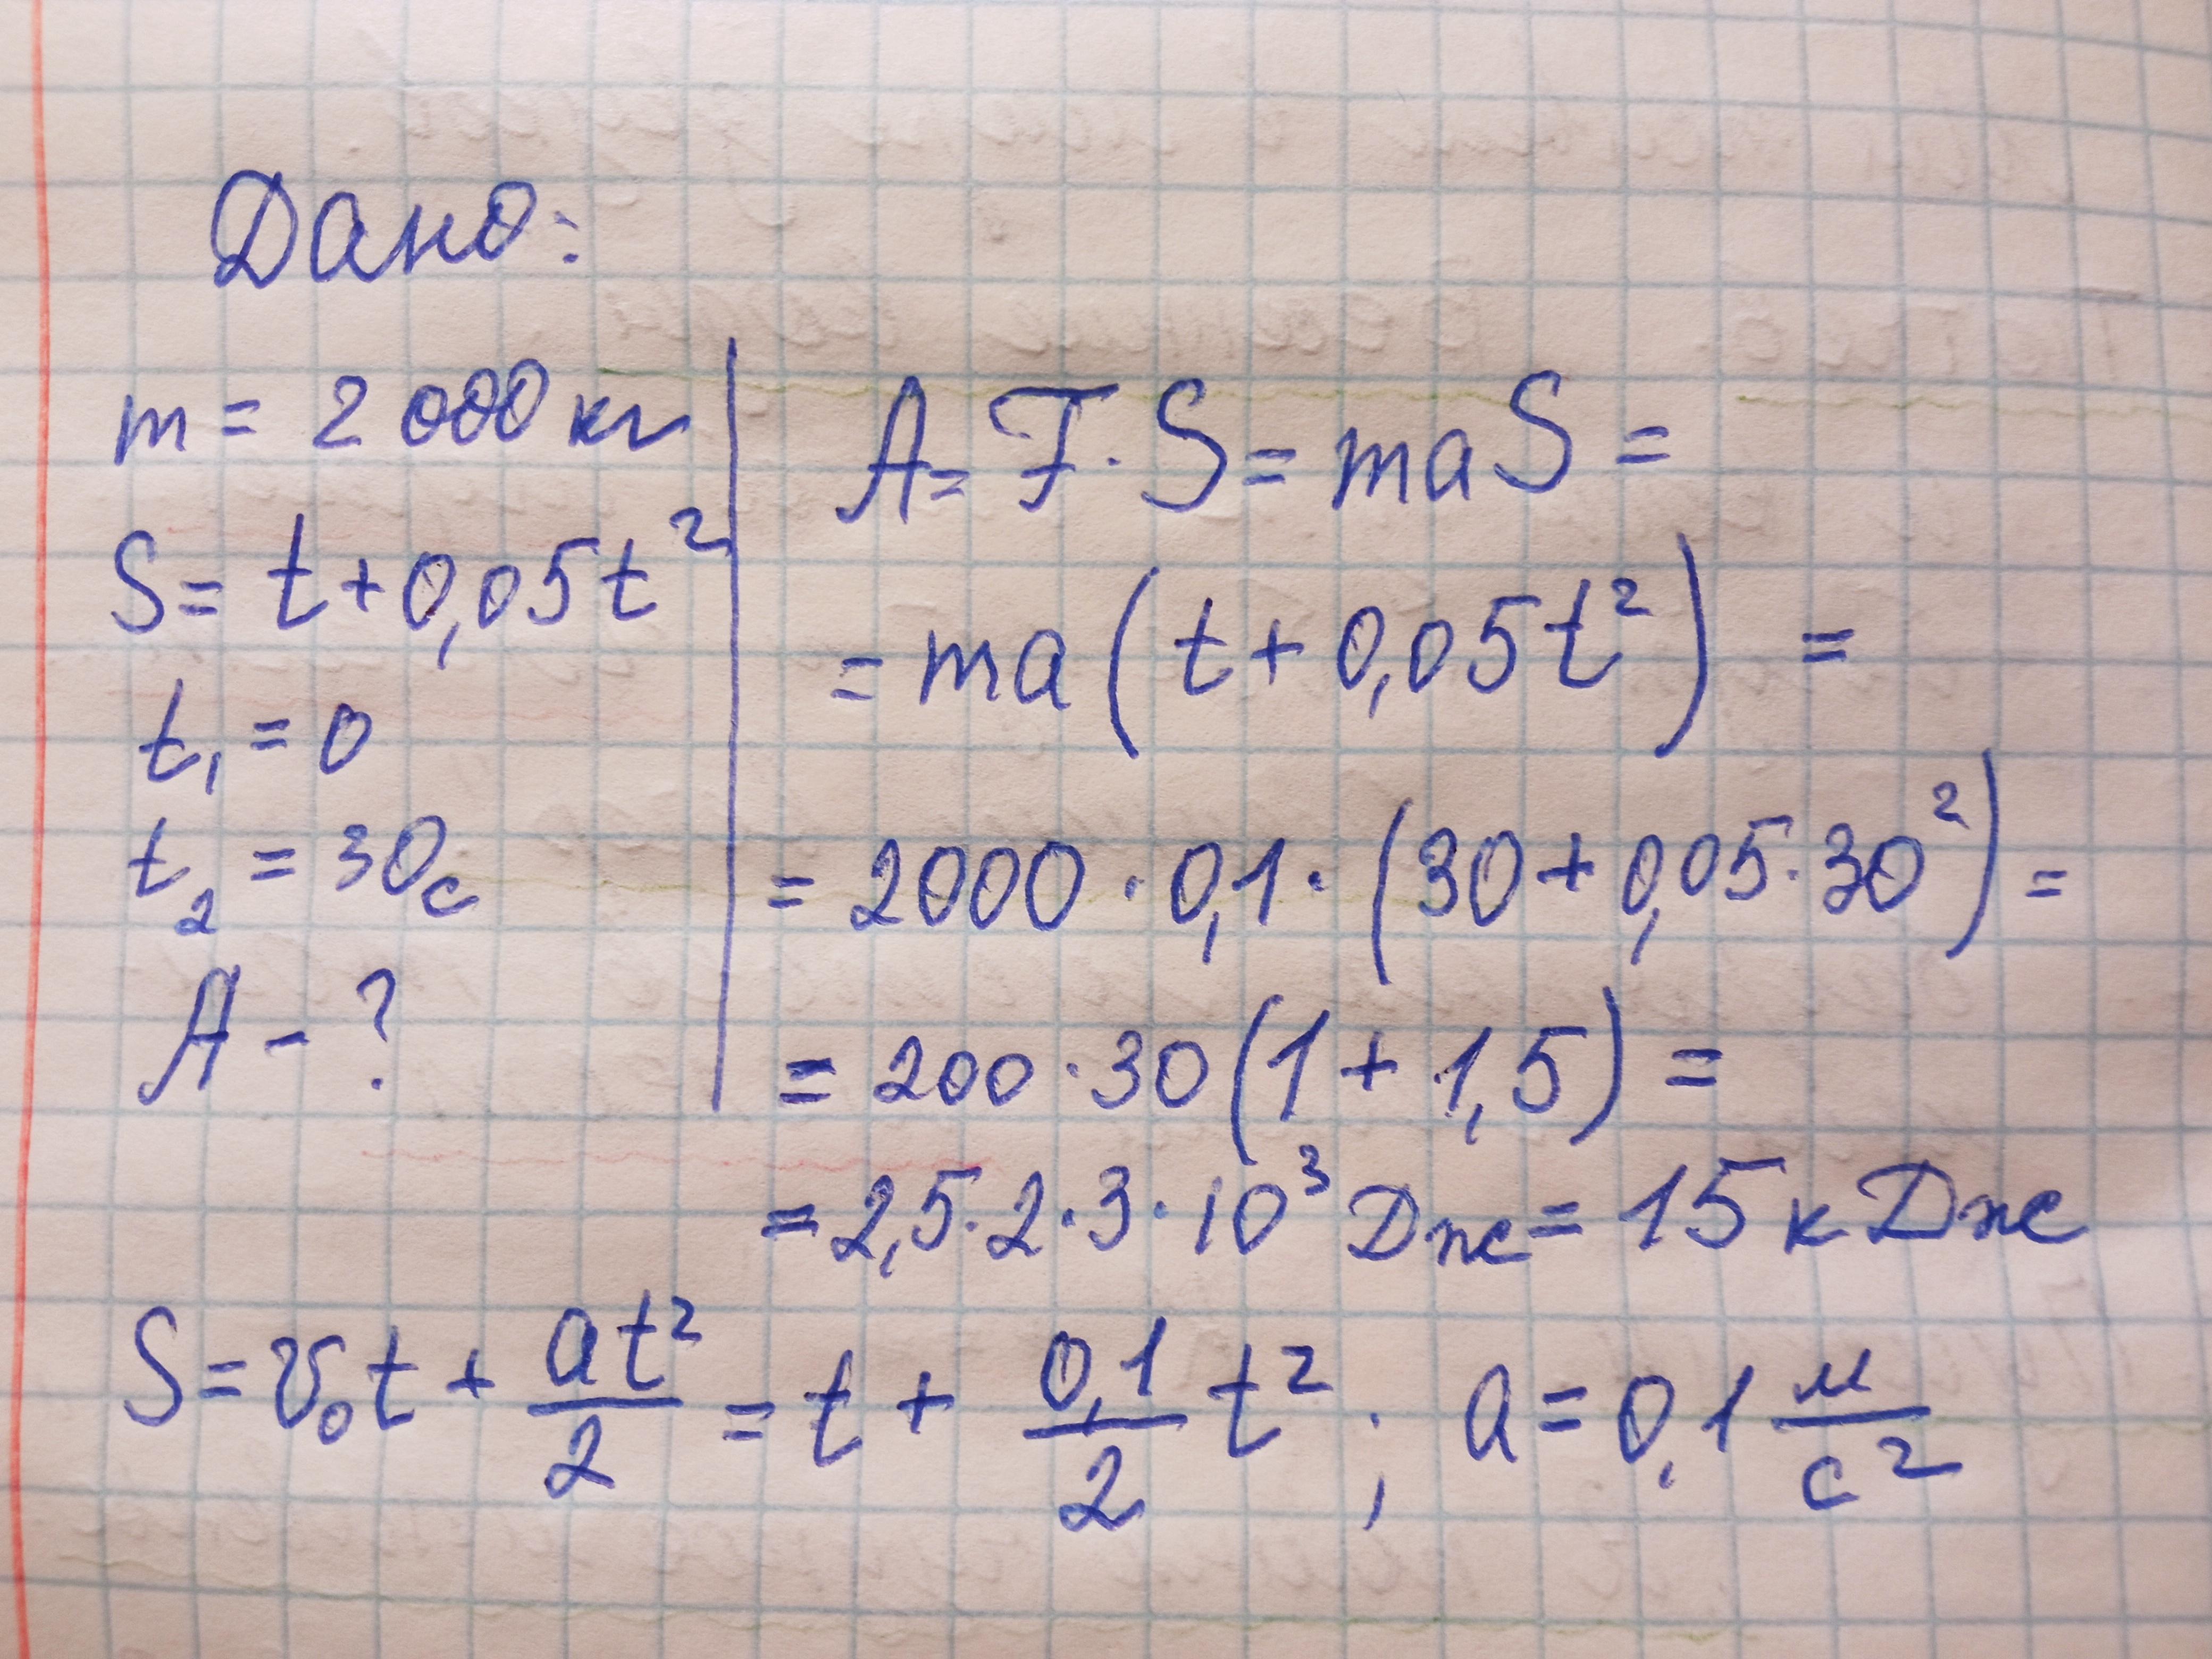 Дано:
m = 2 000 кг
S = t + 0,05t²
t₁ = 0
t₂ = 30с
A - ?
A = F · S = maS =
= ma(t + 0,05t²) =
= 2000 · 0,1 · (30 + 0,05 · 30²) =
= 200 · 30(1 + 1,5) =
= 2,5 · 2 · 3 · 10³ Дж = 15 кДж
S = v₀t + at²/2 = t + 0,1/2 t² ; a = 0,1 м/с²